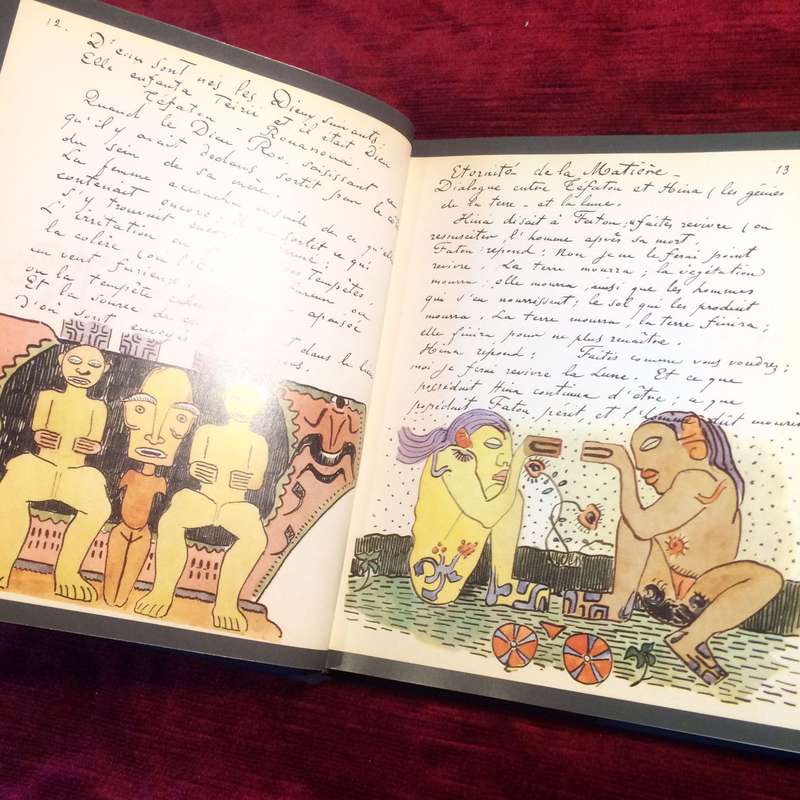 12.
D'eux sont nés les Dieux suivants:
Elle enfanta Teirii et il était Dieu
Téfatou - Rouanoua.
Quand le Dieu Roo, saisissant
qu'il y avait dedans, sortit par le côté
du sein de sa mère.
La femme accoucha ensuite de ce qu'elle
contenait encore sortit ce qui
s'y trouvait
L'irritation ou tempêtes,
la colère (ou ou
un vent furieux apaisé
ou la tempête
Et la source de
D'où sont envoyés dans le lieu
13
Eternité de la Matière_
Dialogue entre Téfatou et Hina (les génies
de la terre - et la lune.
Hina disait à Fatou: «faites revivre (ou
ressusciter l'homme après sa mort.
Fatou repond: Non je ne le ferai point
revivre. La terre mourra; la végétation
mourra; elle mourra, ainsi que les hommes
qui s'en nourrissent; le sol qui les produit
mourra. La terre mourra, la terre finira;
elle finira pour ne plus renaître.
Hina repond: Faites comme vous voudrez;
moi je ferai revivre la Lune. Et ce que
possédait Hina continua d'être; ce que
possédait Fatou périt, et l'homme dût mourir